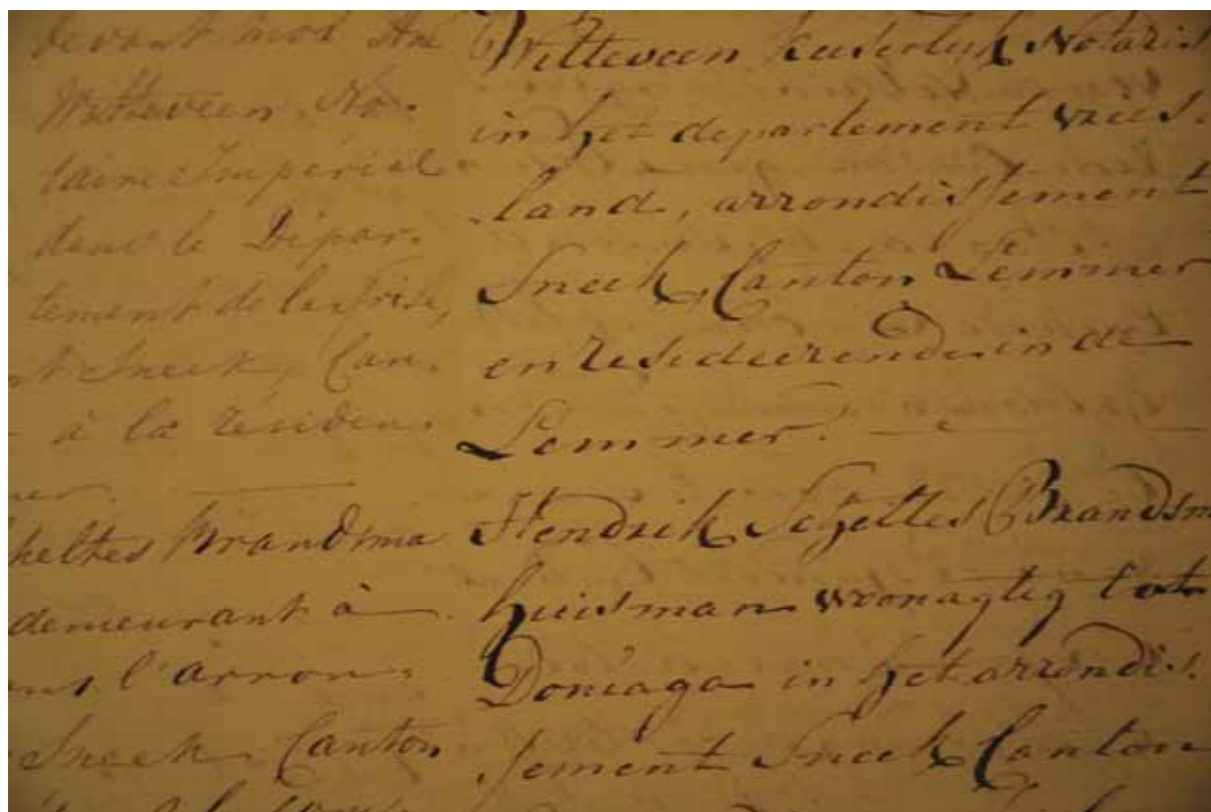 devant moi
Witteveen, No-
taire Impérial
dans le Dépar-
tement de la Frise,
Sneek, Can-
à la résiden-
heltes Brandsma
demeurant à
l'arron-
Sneek, Canton
Witteveen keiserlyk Notaris
in het departement vries-
land, arrondissement
Sneek, Canton Lemmer
en resideerende in de
Lemmer.
Hendrik Brandsm
huisman woonagtig tot
Doniaga in het arrondis-
sement Sneek Canton